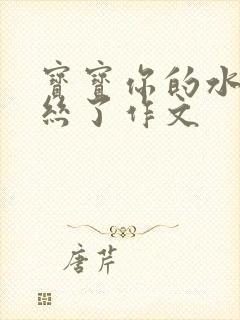 寳寳你的水
絲了作文
唐芹